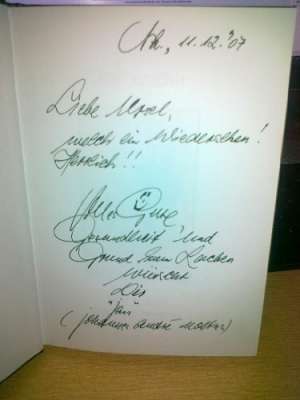 11.12.'07
Liebe Ursel,
welch ein Wiedersehen!
Herrlich!!
Alles Gute,
Gesundheit und
Grund zum Lachen
wünscht
Dir
"Jan"
(Johannes André